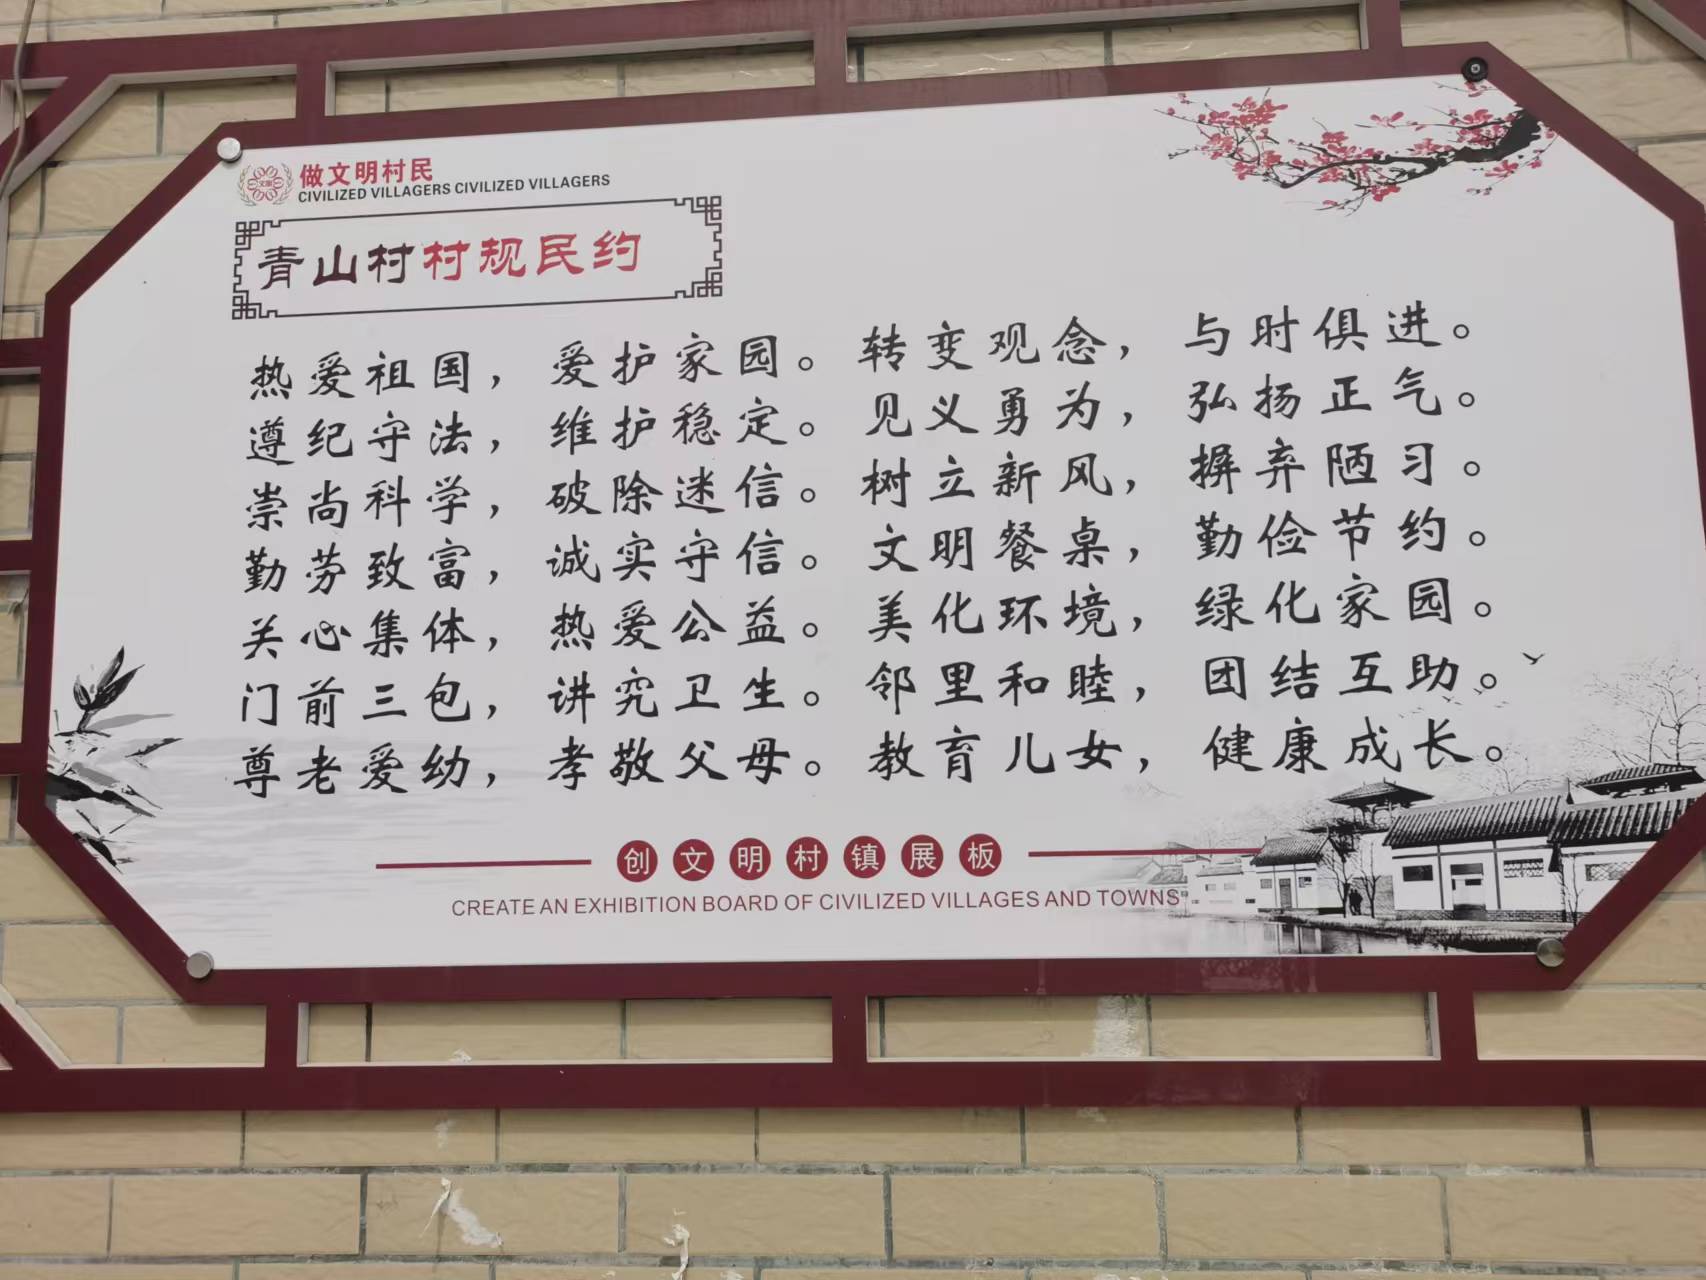 做文明村民
CIVILIZED VILLAGERS CIVILIZED VILLAGERS
青山村村规民约
热爱祖国，爱护家园。转变观念，与时俱进。
遵纪守法，维护稳定。见义勇为，弘扬正气。
崇尚科学，破除迷信。树立新风，摒弃陋习。
勤劳致富，诚实守信。文明餐桌，勤俭节约。
关心集体，热爱公益。美化环境，绿化家园。
门前三包，讲究卫生。邻里和睦，团结互助。
尊老爱幼，孝敬父母。教育儿女，健康成长。
创文明村镇展板
CREATE AN EXHIBITION BOARD OF CIVILIZED VILLAGES AND TOWNS